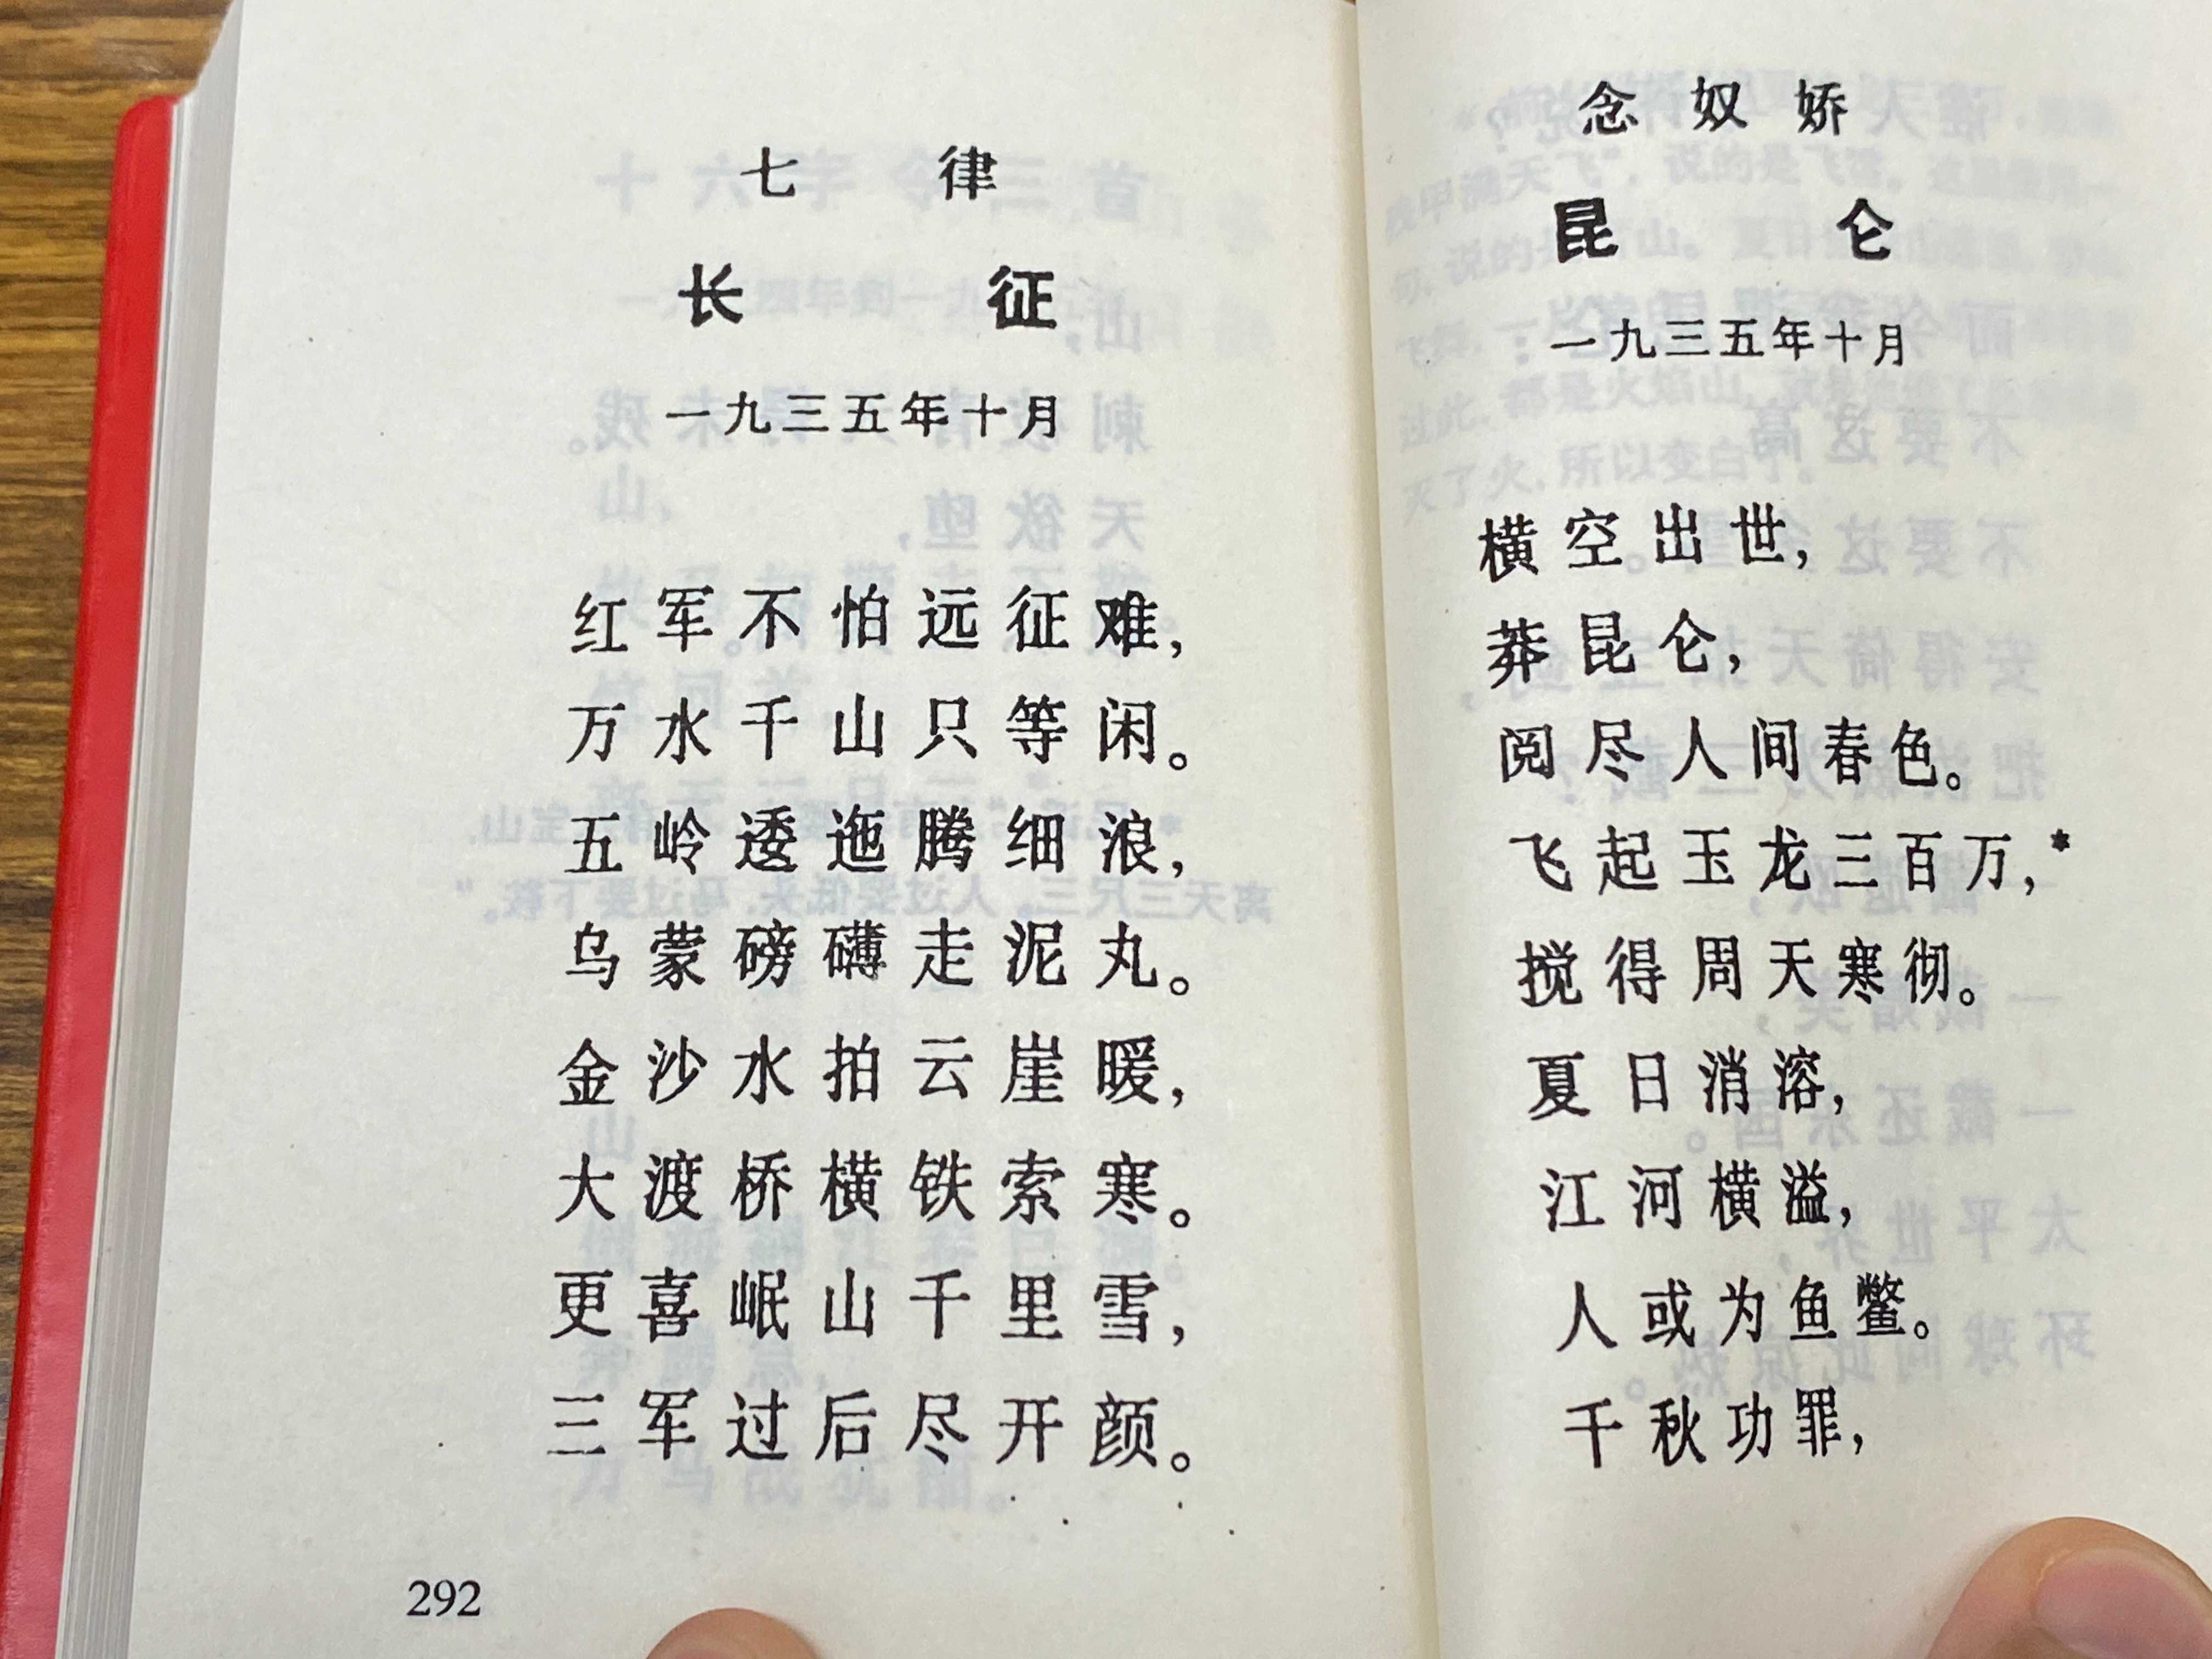 七律
长征
一九三五年十月
红军不怕远征难，
万水千山只等闲。
五岭逶迤腾细浪，
乌蒙磅礴走泥丸。
金沙水拍云崖暖，
大渡桥横铁索寒。
更喜岷山千里雪，
三军过后尽开颜。
292
念奴娇
昆仑
一九三五年十月
横空出世，
莽昆仑，
阅尽人间春色。
飞起玉龙三百万，*
搅得周天寒彻。
夏日消溶，
江河横溢，
人或为鱼鳖。
千秋功罪，